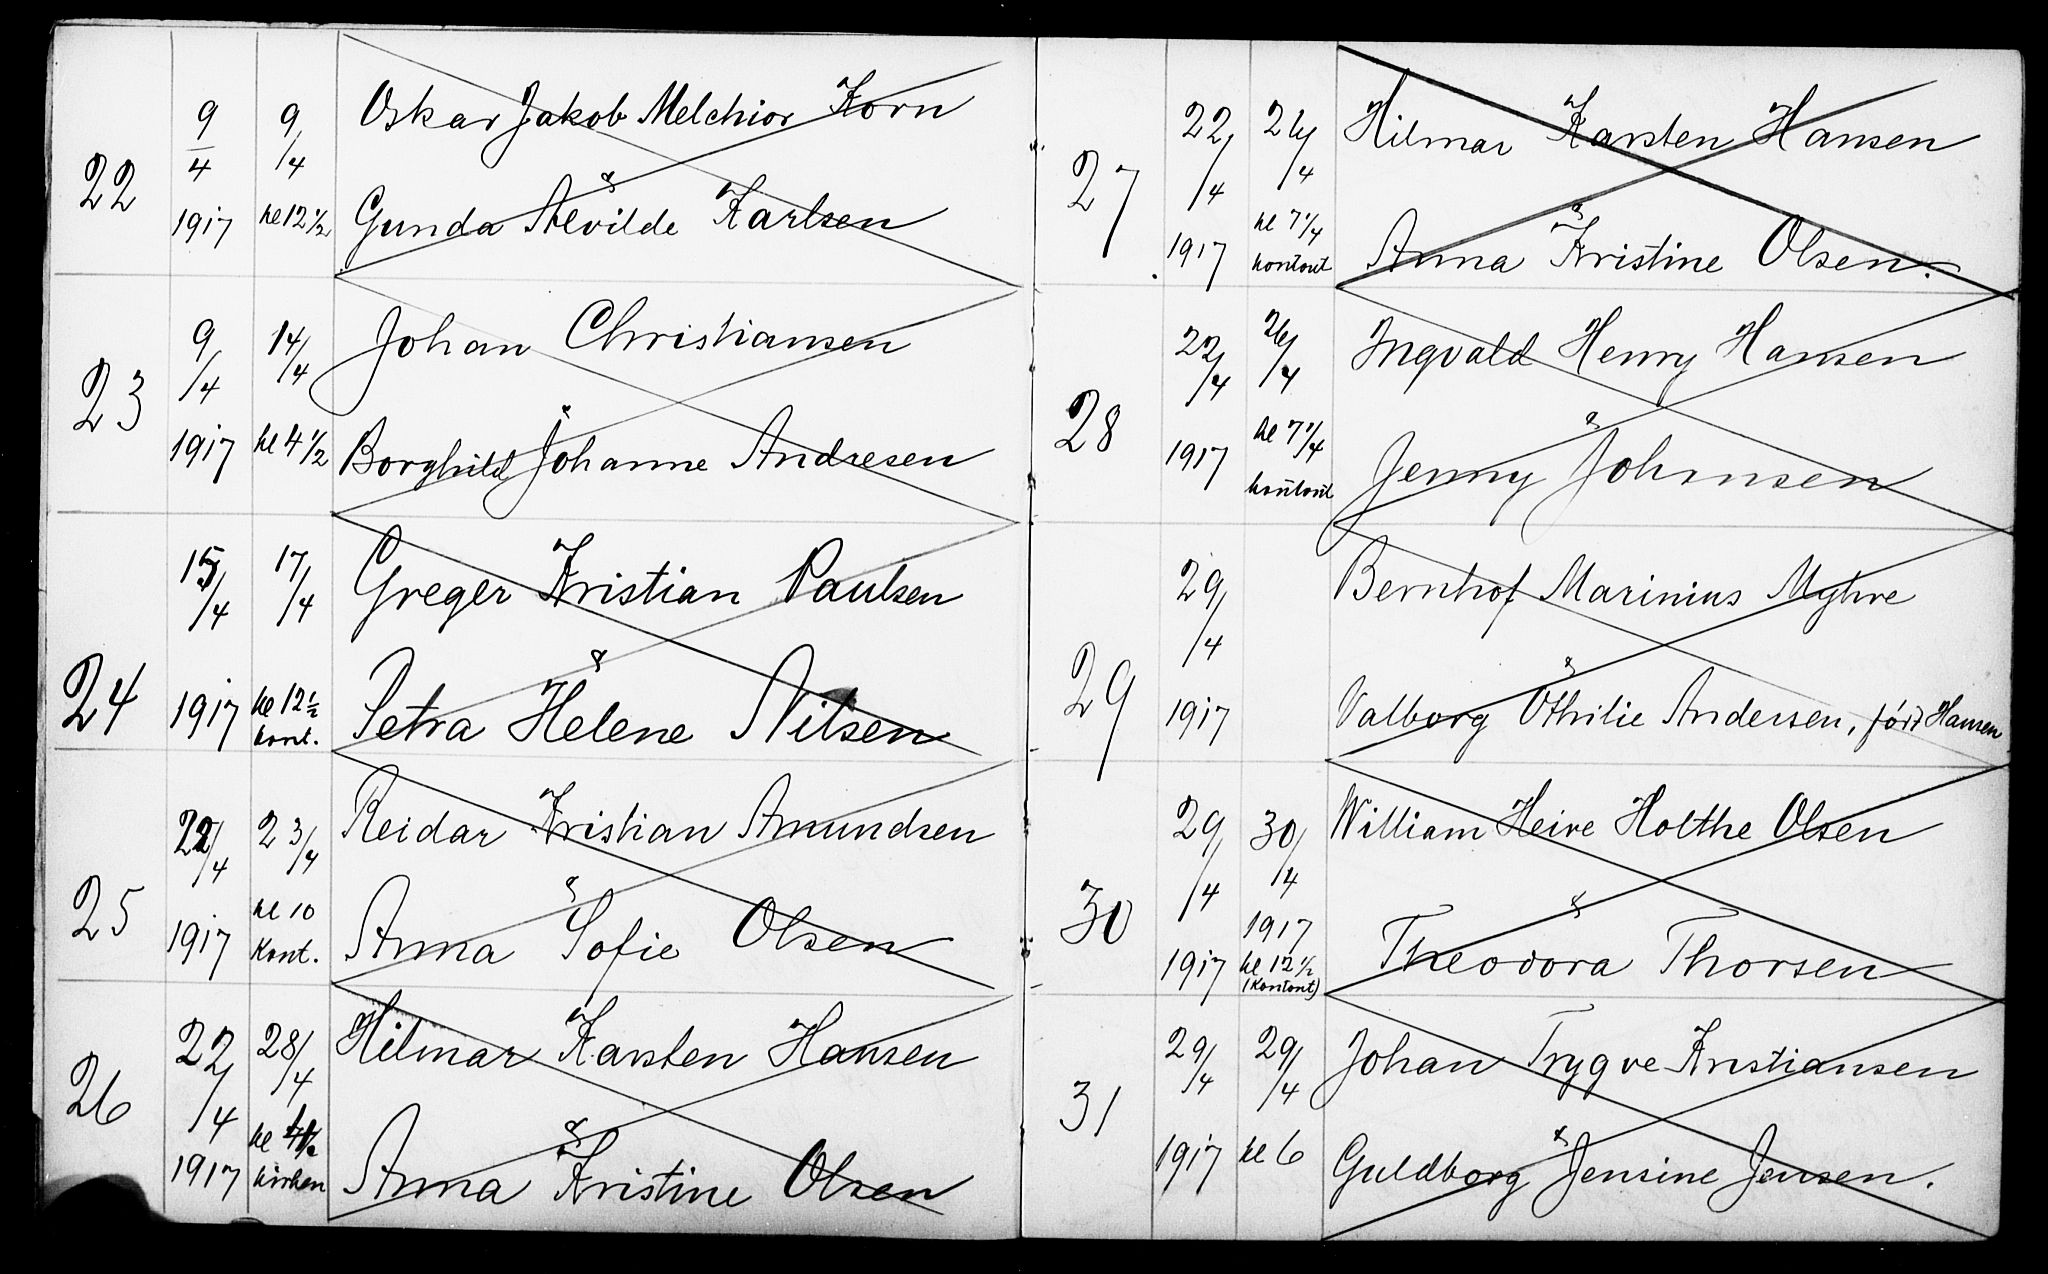 22
9/4 1917
9/4 kl 12 1/2
Oskar Jakob Melchior Korn
&
Gunda Alvilde Karlsen
23
9/4 1917
14/4 kl 4 1/2
Johan Christiansen
&
Borghild Johanne Andresen
24
15/4 1917
17/4 kl 12 1/2 kont.
Greger Kristian Paulsen
&
Petra Helene Nilsen
25
22/4 1917
23/4 kl 10 Kont.
Reidar Kristian Amundsen
&
Anna Sofie Olsen
26
22/4 1917
28/4 kl kirken
Hilmar Karsten Hansen
&
Anna Kristine Olsen
27
22/4 1917
26/4 kl 7 1/4 kontout
Hilmar Karsten Hansen
&
Anna Kristine Olsen.
28
22/4 1917
26/4 kl 7 1/4 kontout
Ingvald Henry Hansen
&
Jenny Johnsen
29
29/4 1917
Bernhof Marinius Myhre
&
Valborg Othilie Andersen, född Hansen
30
29/4 1917
30/4 1917 kl 12 1/2 (Kontont)
William Heire Holthe Olsen
&
Theodora Thorsen
31
29/4 1917
29/4 kl 6
Johan Trygve Kristiansen
&
Guldborg Jensine Jensen.